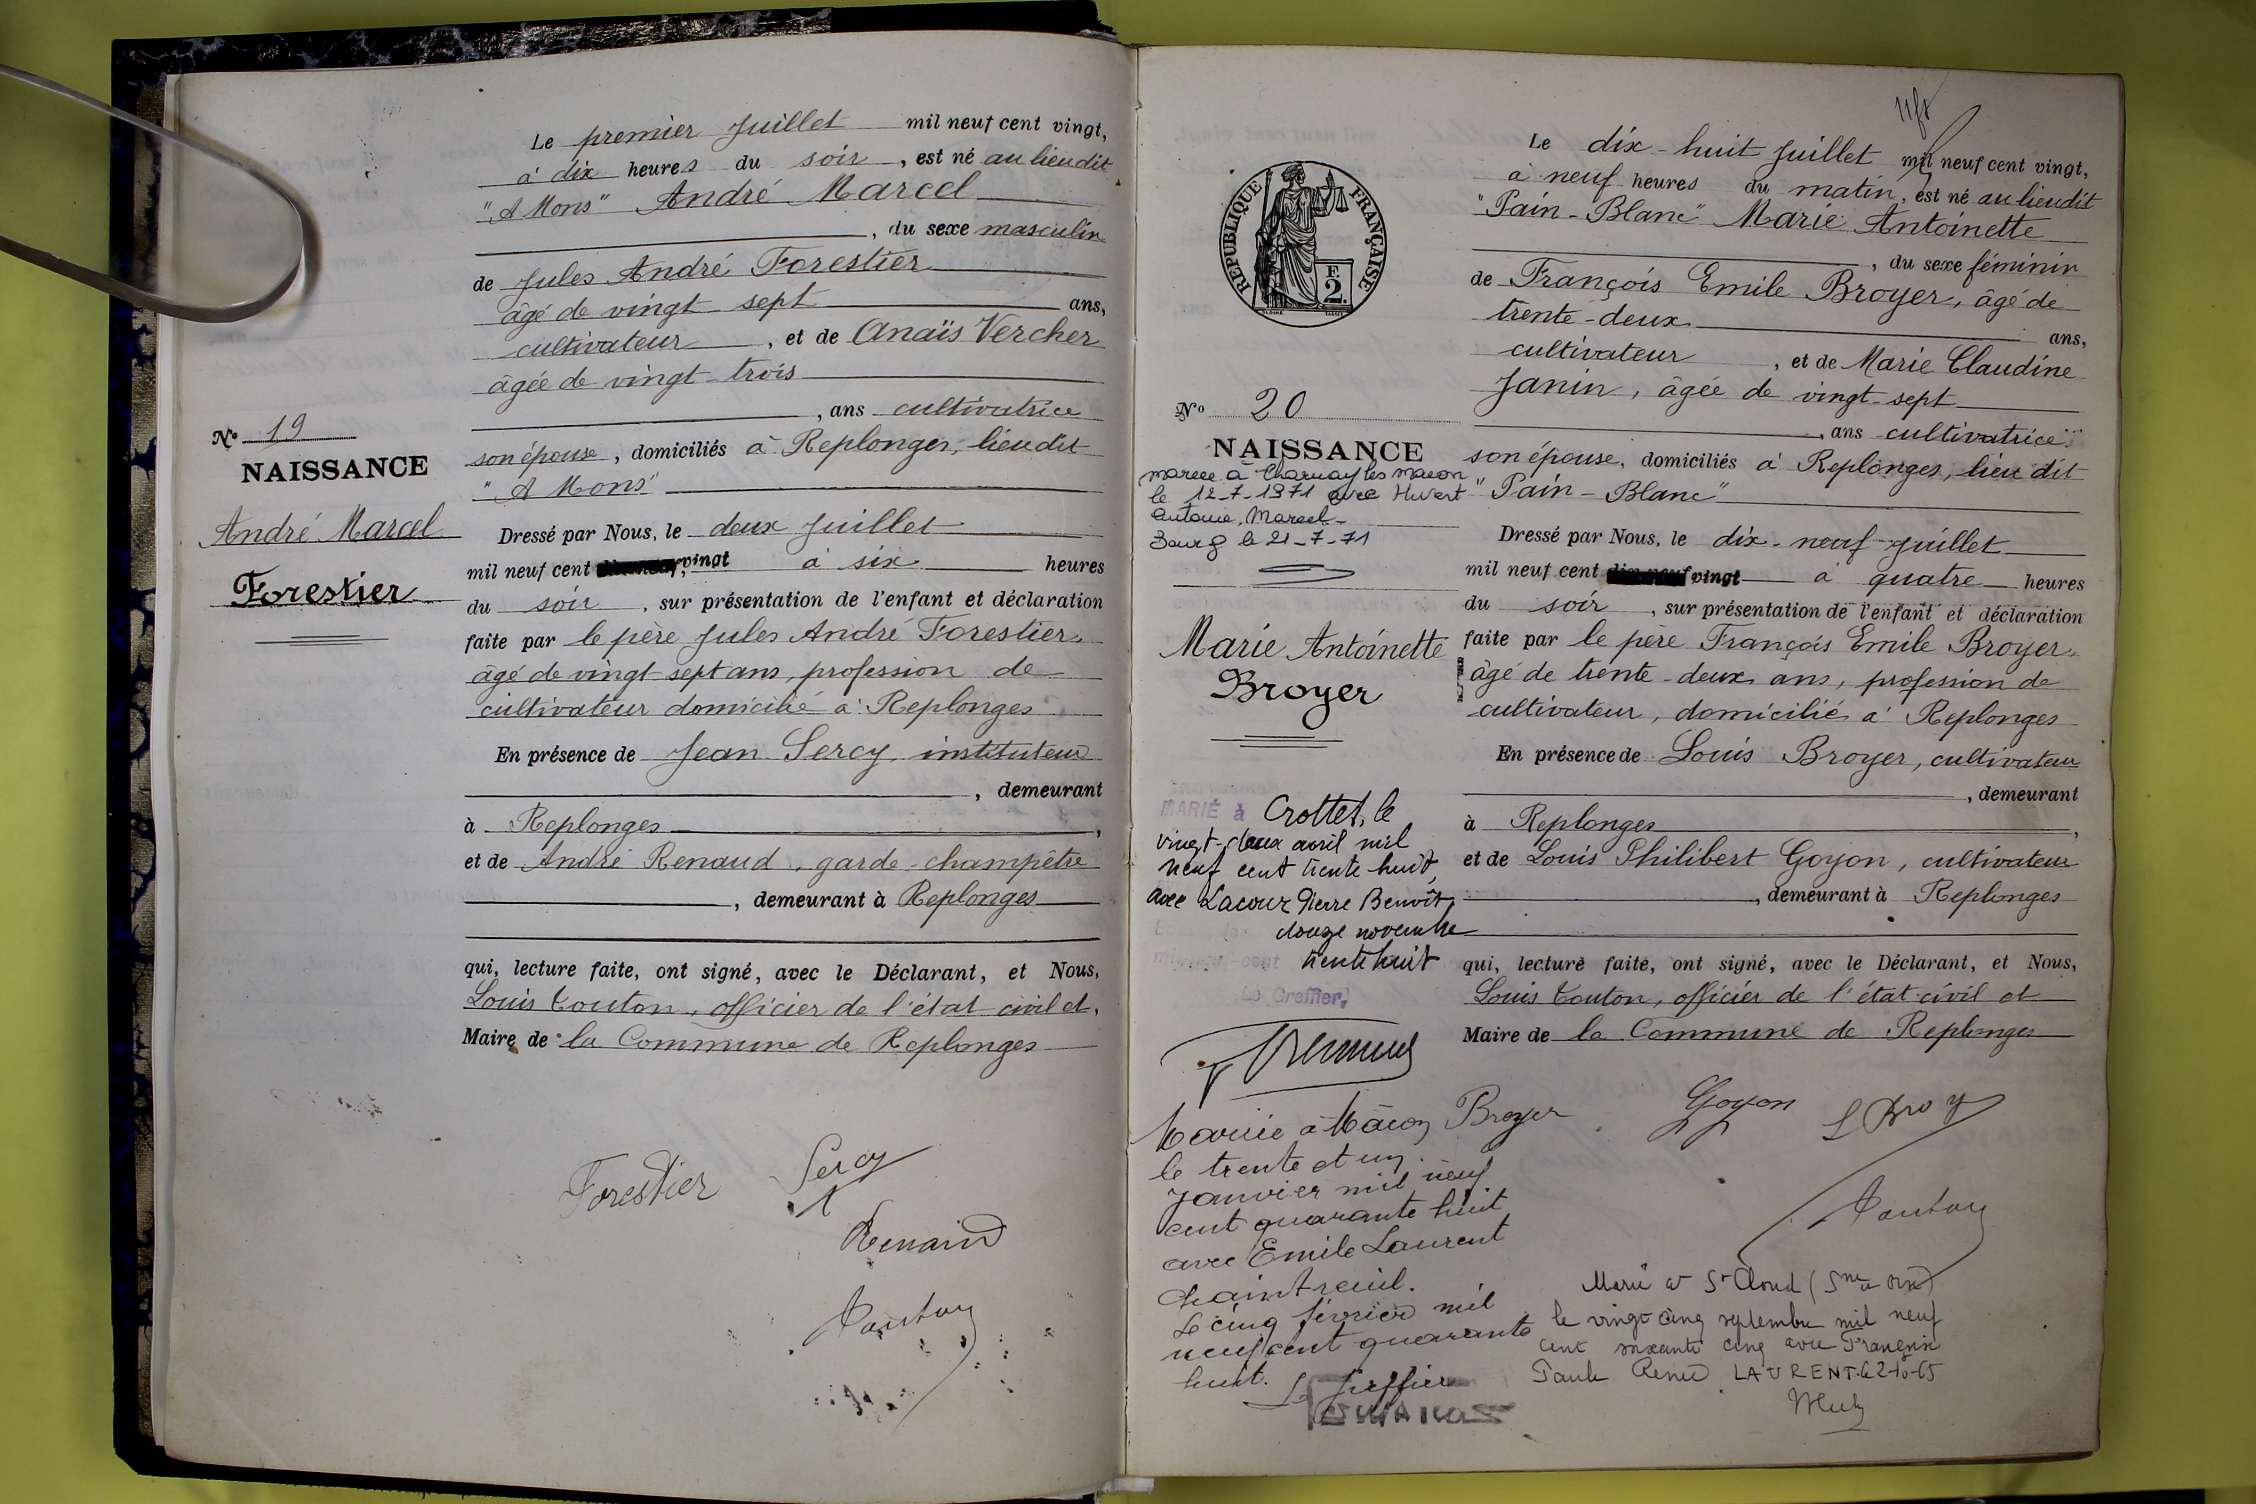 Le premier Juillet mil neuf cent vingt,
à dix heures du soir, est né au lieudit
"A Mons" André Marcel
, du sexe masculin
de Jules André Forestier
âgé de vingt sept ans,
cultivateur, et de Anaïs Vercher
âgée de vingt-trois
, ans cultivatrice
son épouse, domiciliés à Replonges, lieu dit
"A Mons"
No 19
NAISSANCE
André Marcel
Forestier
Dressé par Nous, le deux Juillet
mil neuf cent vingt à six heures
du soir, sur présentation de l'enfant et déclaration
faite par le père Jules André Forestier,
âgé de vingt-sept ans, profession de
cultivateur domicilié à Replonges
En présence de Jean Sercy, instituteur
, demeurant
à Replonges,
et de André Renaud, garde-champêtre
, demeurant à Replonges
qui, lecture faite, ont signé, avec le Déclarant, et Nous,
Louis Touton, officier de l'état civil et,
Maire de la Commune de Replonges
Forestier Sercy
Renaud
Touton
Le dix-huit Juillet mil neuf cent vingt,
à neuf heures du matin, est né au lieudit
"Pain-Blanc" Marie Antoinette
, du sexe féminin
de François Emile Broyer, âgé de
trente-deux ans,
cultivateur, et de Marie Claudine
Janin, âgée de vingt-sept
, ans cultivatrice
son épouse, domiciliés à Replonges, lieu dit
"Pain-Blanc"
RÉPUBLIQUE FRANÇAISE
F.
2.
No 20
NAISSANCE
mariée à Charnay les Macon
le 12-7-1971 avec Huvert
Antoine, Marcel-
Bourg le 21-7-71
Marie Antoinette
Broyer
Dressé par Nous, le dix-neuf Juillet
mil neuf cent vingt à quatre heures
du soir, sur présentation de l'enfant et déclaration
faite par le père François Emile Broyer,
âgé de trente-deux ans, profession de
cultivateur, domicilié à Replonges
En présence de Louis Broyer, cultivateur
, demeurant
à Replonges,
et de Louis Philibert Goyon, cultivateur
, demeurant à Replonges
qui, lecture faite, ont signé, avec le Déclarant, et Nous,
Louis Touton, officier de l'état civil et
Maire de la Commune de Replonges
MARIÉ à Crottet, le
vingt-deux avril mil
neuf cent trente huit,
avec Lacour Pierre Benoît
douze novembre
cent trente huit
Le Greffier,
Broyer Goyon L Broy
Touton
Mariée à Mâcon
le trente et un
Janvier mil neuf
cent quarante huit
avec Emile Laurent
Chaintreuil.
Le cinq février mil
neuf cent quarante
huit. Le Greffier
Marié à St Cloud (Sne et Oise)
le vingt cinq septembre mil neuf
cent soixante cinq avec Françoise
Paule Renée LAURENT. le 2-10-65